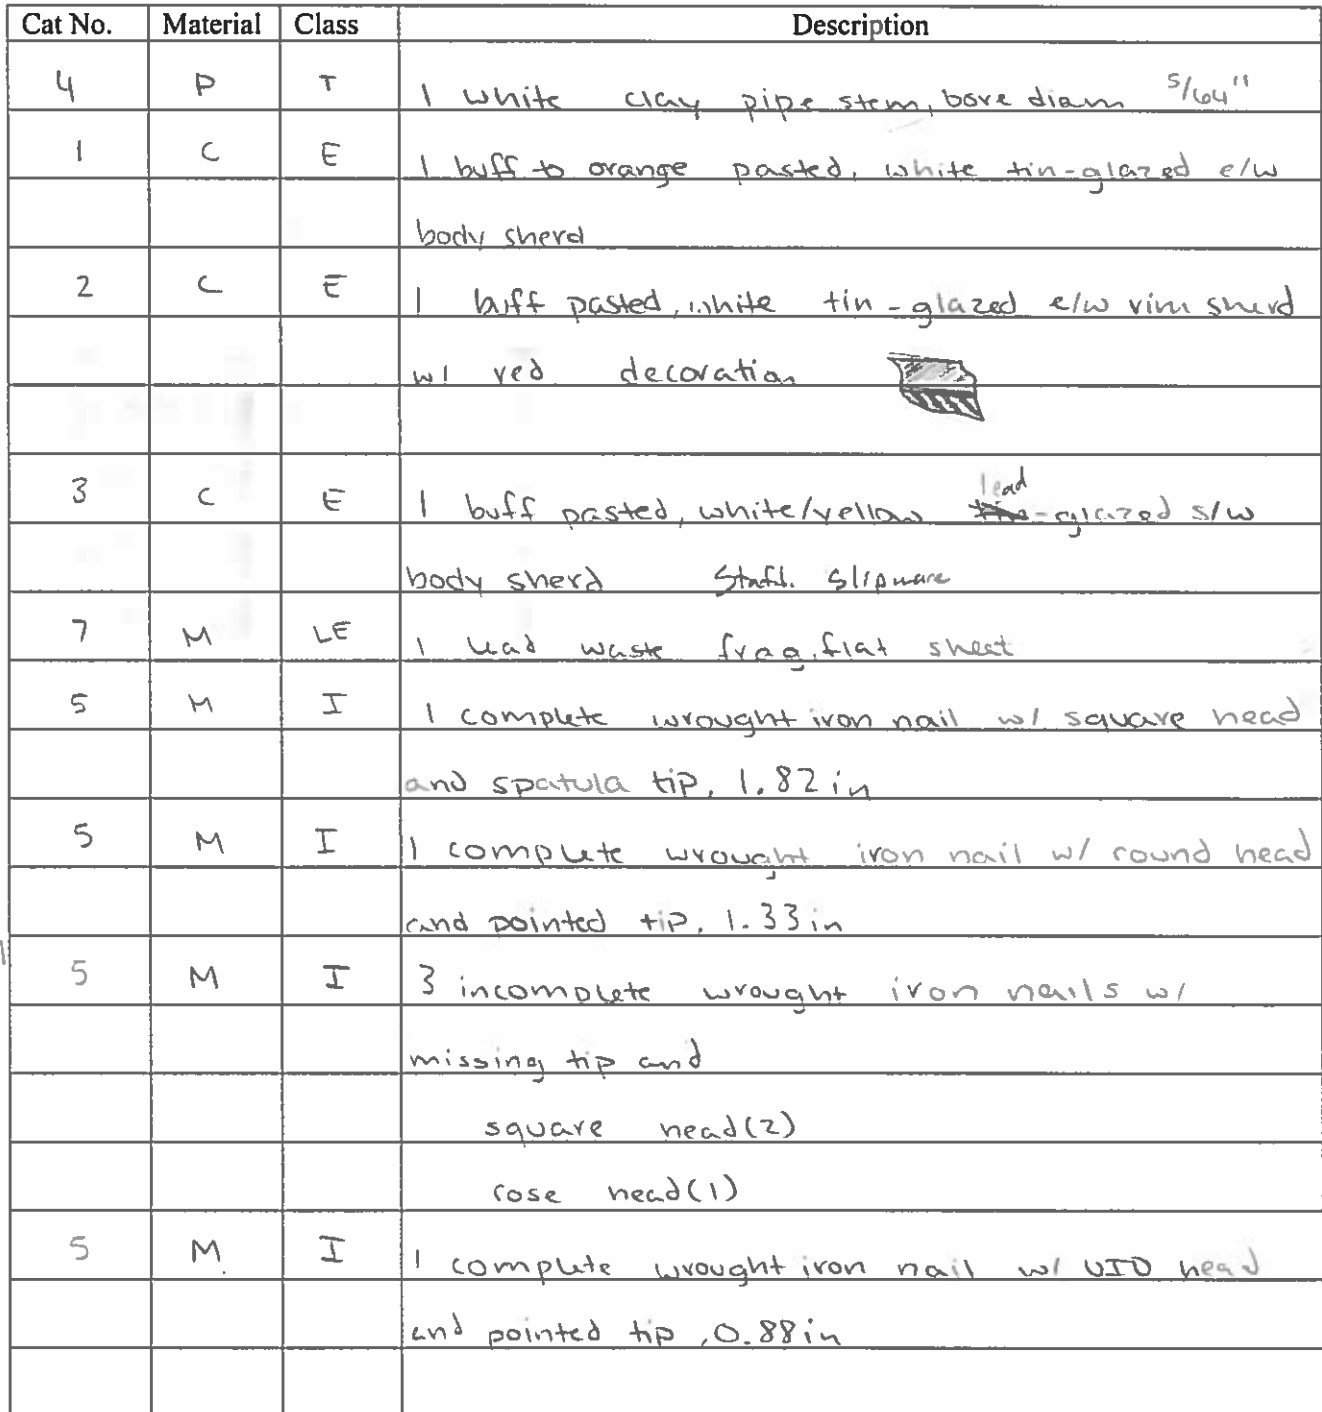 Cat No. Material Class Description
4 P T 1 white clay pipe stem, bore diam 5/64"
1 C E 1 buff to orange pasted, white tin-glazed e/w
body sherd
2 C E 1 buff pasted, white tin-glazed e/w rim sherd
w/ red decoration
lead
3 C E 1 buff pasted, white/yellow tin-glazed s/w
body sherd Staff. Slipware
7 M LE 1 lead waste frag, flat sheet
5 M I 1 complete wrought iron nail w/ square head
and spatula tip, 1.82 in
5 M I 1 complete wrought iron nail w/ round head
and pointed tip, 1.33 in
5 M I 3 incomplete wrought iron nails w/
missing tip and
square head(2)
rose head(1)
5 M I 1 complete wrought iron nail w/ UID head
and pointed tip, 0.88in